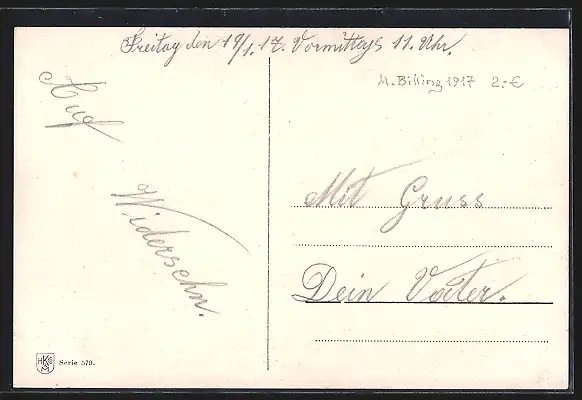 Freitag den 19/1. 17. Vormittags 11. Uhr.
M. Billing 1917 2.-€
Auf
Widersehn.
Mit Gruss
Dein Vater.
HKM
Serie 579.